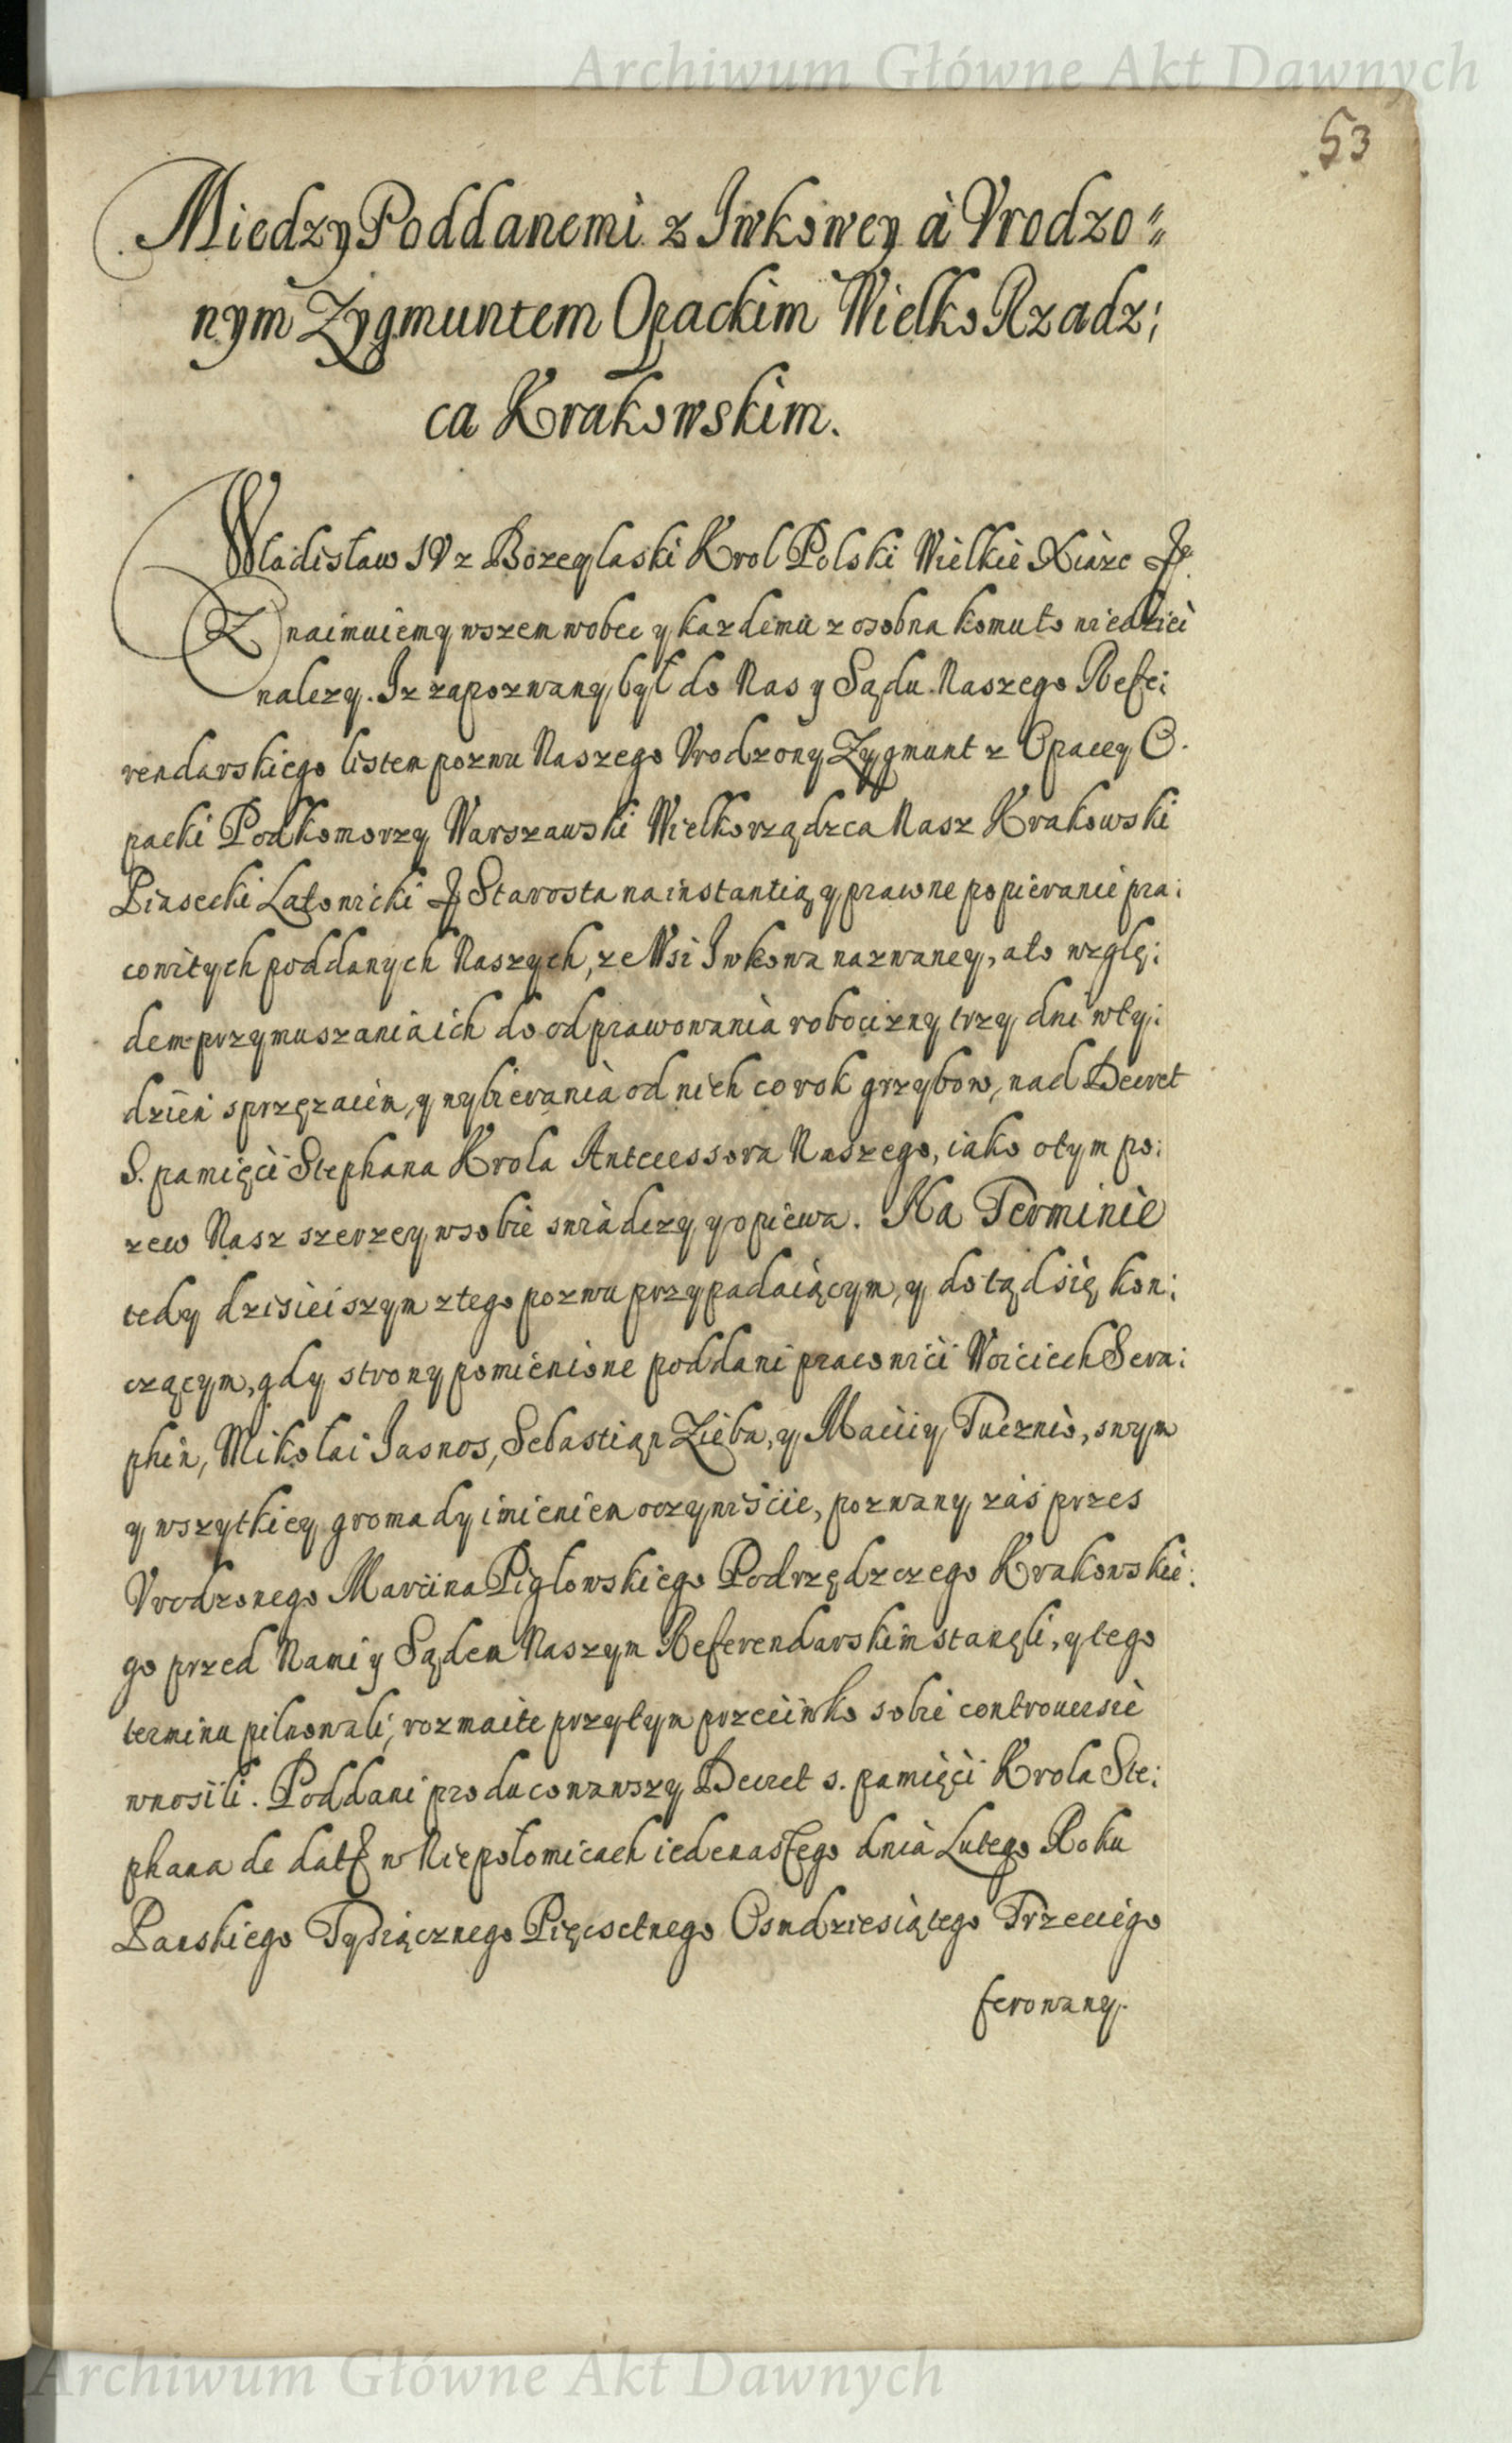 Archiwum Główne Akt Dawnych
53
Miedzy Poddanemi z Iwkowey à Vrodzo⸗
nym Zygmuntem Opackim Wielko Rzadz;
ca Krakowskim.
Wladisław IV z Bozey laski Krol Polski Wielkie Xiàze &c.
Znaimuiemy wszem wobec y kazdemu z osobna komu to niedzieć
nalezy. Iz zapozwany był do Nas y Sądu Naszego Refe:
rendarskiego listem pozwu Naszego Vrodzony Zygmunt z Opacey O.
packi Podkomorzy Warszawski Wielkorządzca Nasz Krakowski
Piasecki Latowicki & Starosta na instantią y prawne popieranie pra:
cowitych poddanych Naszych, ze Wsi Iwkowa nazwaney, a to wzglę:
dem przymuszania ich do odprawowania robocizny trzy dni w ty:
dzień sprzęzaiem, y wybierania od nich co rok grzybow, nad Decret
S. pamięci Stephana Krola Antecessora Naszego, iako o tym po:
zew Nasz szerzey w sobie swiadczy y opiewa. Na Terminie
tedy dzisieiszym z tego pozwu przypadaiącym, y dotąd się kon:
czącym, gdy strony pomienione poddani pracowici Woiciech Sera:
phin, Mikołai Iasnos, Sebastian Zięba, y Maciey Tucznio, swym
y wszytkiey gromady imieniem oczywiście, pozwany zaś przes
Vrodzonego Marcina Pigłowskiego Podrzędzczego Krakowskie:
go przed Nami y Sądem Naszym Referendarskim stanęli, y tego
terminu pilnowali, rozmaite przytym przeciwko sobie controuersie
wnosili. Poddani producowawszy Decret s. pamięci Krola Ste:
phana de data w Niepołomicach iedenastego dnia Lutego Roku
Panskiego Tysiącznego Pięcsetnego Osmdziesiątego Trzeciego
ferowany.
Archiwum Główne Akt Dawnych